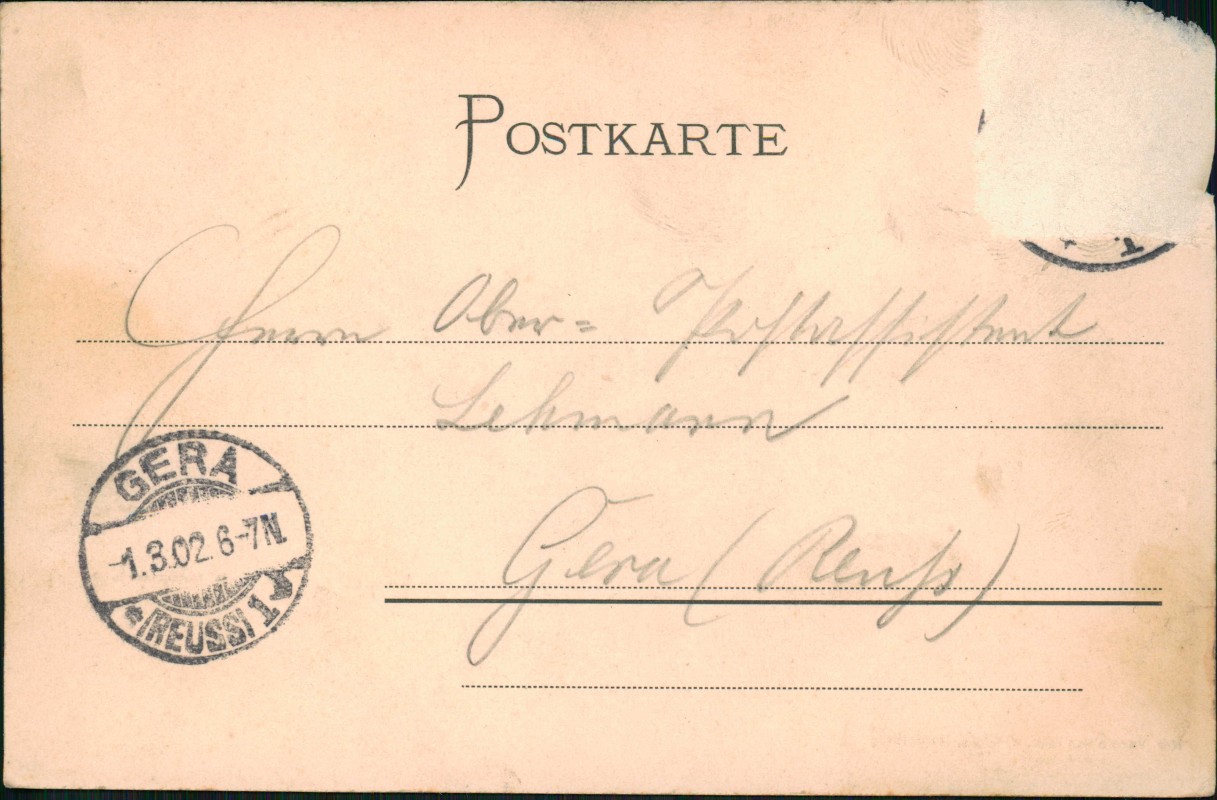 POSTKARTE
T.
Herrn Ober= Postassistent
Lehmann
GERA
-1.3.02.6-7N.
(REUSS) 1
Gera (Reuß)